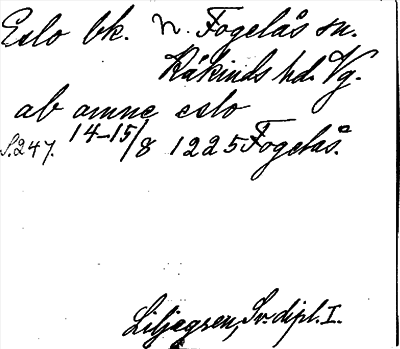 Eslo bk. N. Fogelås sn.
Kåkinds hd. Vg.
ab amne eslo
S.247. 14-15/8 1225 Fogelås.
Liljegren, Sv. dipl. I.